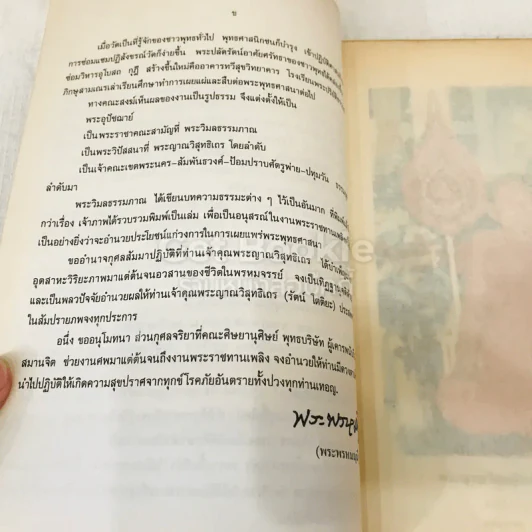 ข
เมื่อวัดเป็นที่รู้จักของชาวพุทธทั่วไป พุทธศาสนิกชนก็บำรุง เข้าปฏิบัติ
การซ่อมแซมปฏิสังขรณ์วัดก็ง่ายขึ้น พระปลัดรัตน์อาศัยศรัทธาของชาวพุทธ
ซ่อมวิหารอุโบสถ กุฏี สร้างขึ้นใหม่คืออาคารทวีสุขวิทยาคาร โรงเรียนพระปริยัติ
ภิกษุสามเณรเล่าเรียนศึกษาทำการเผยแผ่และสืบต่อพระพุทธศาสนาต่อไป
ทางคณะสงฆ์เห็นผลของงานเป็นรูปธรรม จึงแต่งตั้งให้เป็น
พระอุปัชฌาย์
เป็นพระราชาคณะสามัญที่ พระวิมลธรรมภาณ
เป็นพระวิปัสสนาที่ พระญาณวิสุทธิเถร โดยลำดับ
เป็นเจ้าคณะเขตพระนคร-สัมพันธวงศ์-ป้อมปราบศัตรูพ่าย-ปทุมวัน
ลำดับมา
พระวิมลธรรมภาณ ได้เขียนบทความธรรมะต่าง ๆ ไว้เป็นอันมาก
กว่าเรื่อง เจ้าภาพได้รวบรวมพิมพ์เป็นเล่ม เพื่อเป็นอนุสรณ์ในงานพระราชทานเพลิง
เป็นอย่างยิ่งว่าจะอำนวยประโยชน์แก่วงการในการเผยแพร่พระพุทธศาสนา
ขออำนาจกุศลสัมมาปฏิบัติที่ท่านเจ้าคุณพระญาณวิสุทธิเถร ได้บำเพ็ญ
อุตสาหะวิริยะภาพมาแต่ต้นจนอวสานของชีวิตในพรหมจรรย์ จงเป็นทิฏฐานุคติ
และเป็นพลวปัจจัยอำนวยผลให้ท่านเจ้าคุณพระญาณวิสุทธิเถร (รัตน์ โตติยะ)
ในสัมปรายภพจงทุกประการ
อนึ่ง ขออนุโมทนา ส่วนกุศลจริยาที่คณะศิษยานุศิษย์ พุทธบริษัท ผู้เคารพ
สมานจิต ช่วยงานศพมาแต่ต้นจนถึงงานพระราชทานเพลิง จงอำนวยให้ท่านมี
นำไปปฏิบัติให้เกิดความสุขปราศจากทุกข์โรคภัยอันตรายทั้งปวงทุกท่านเทอญ.
(พระพรหม